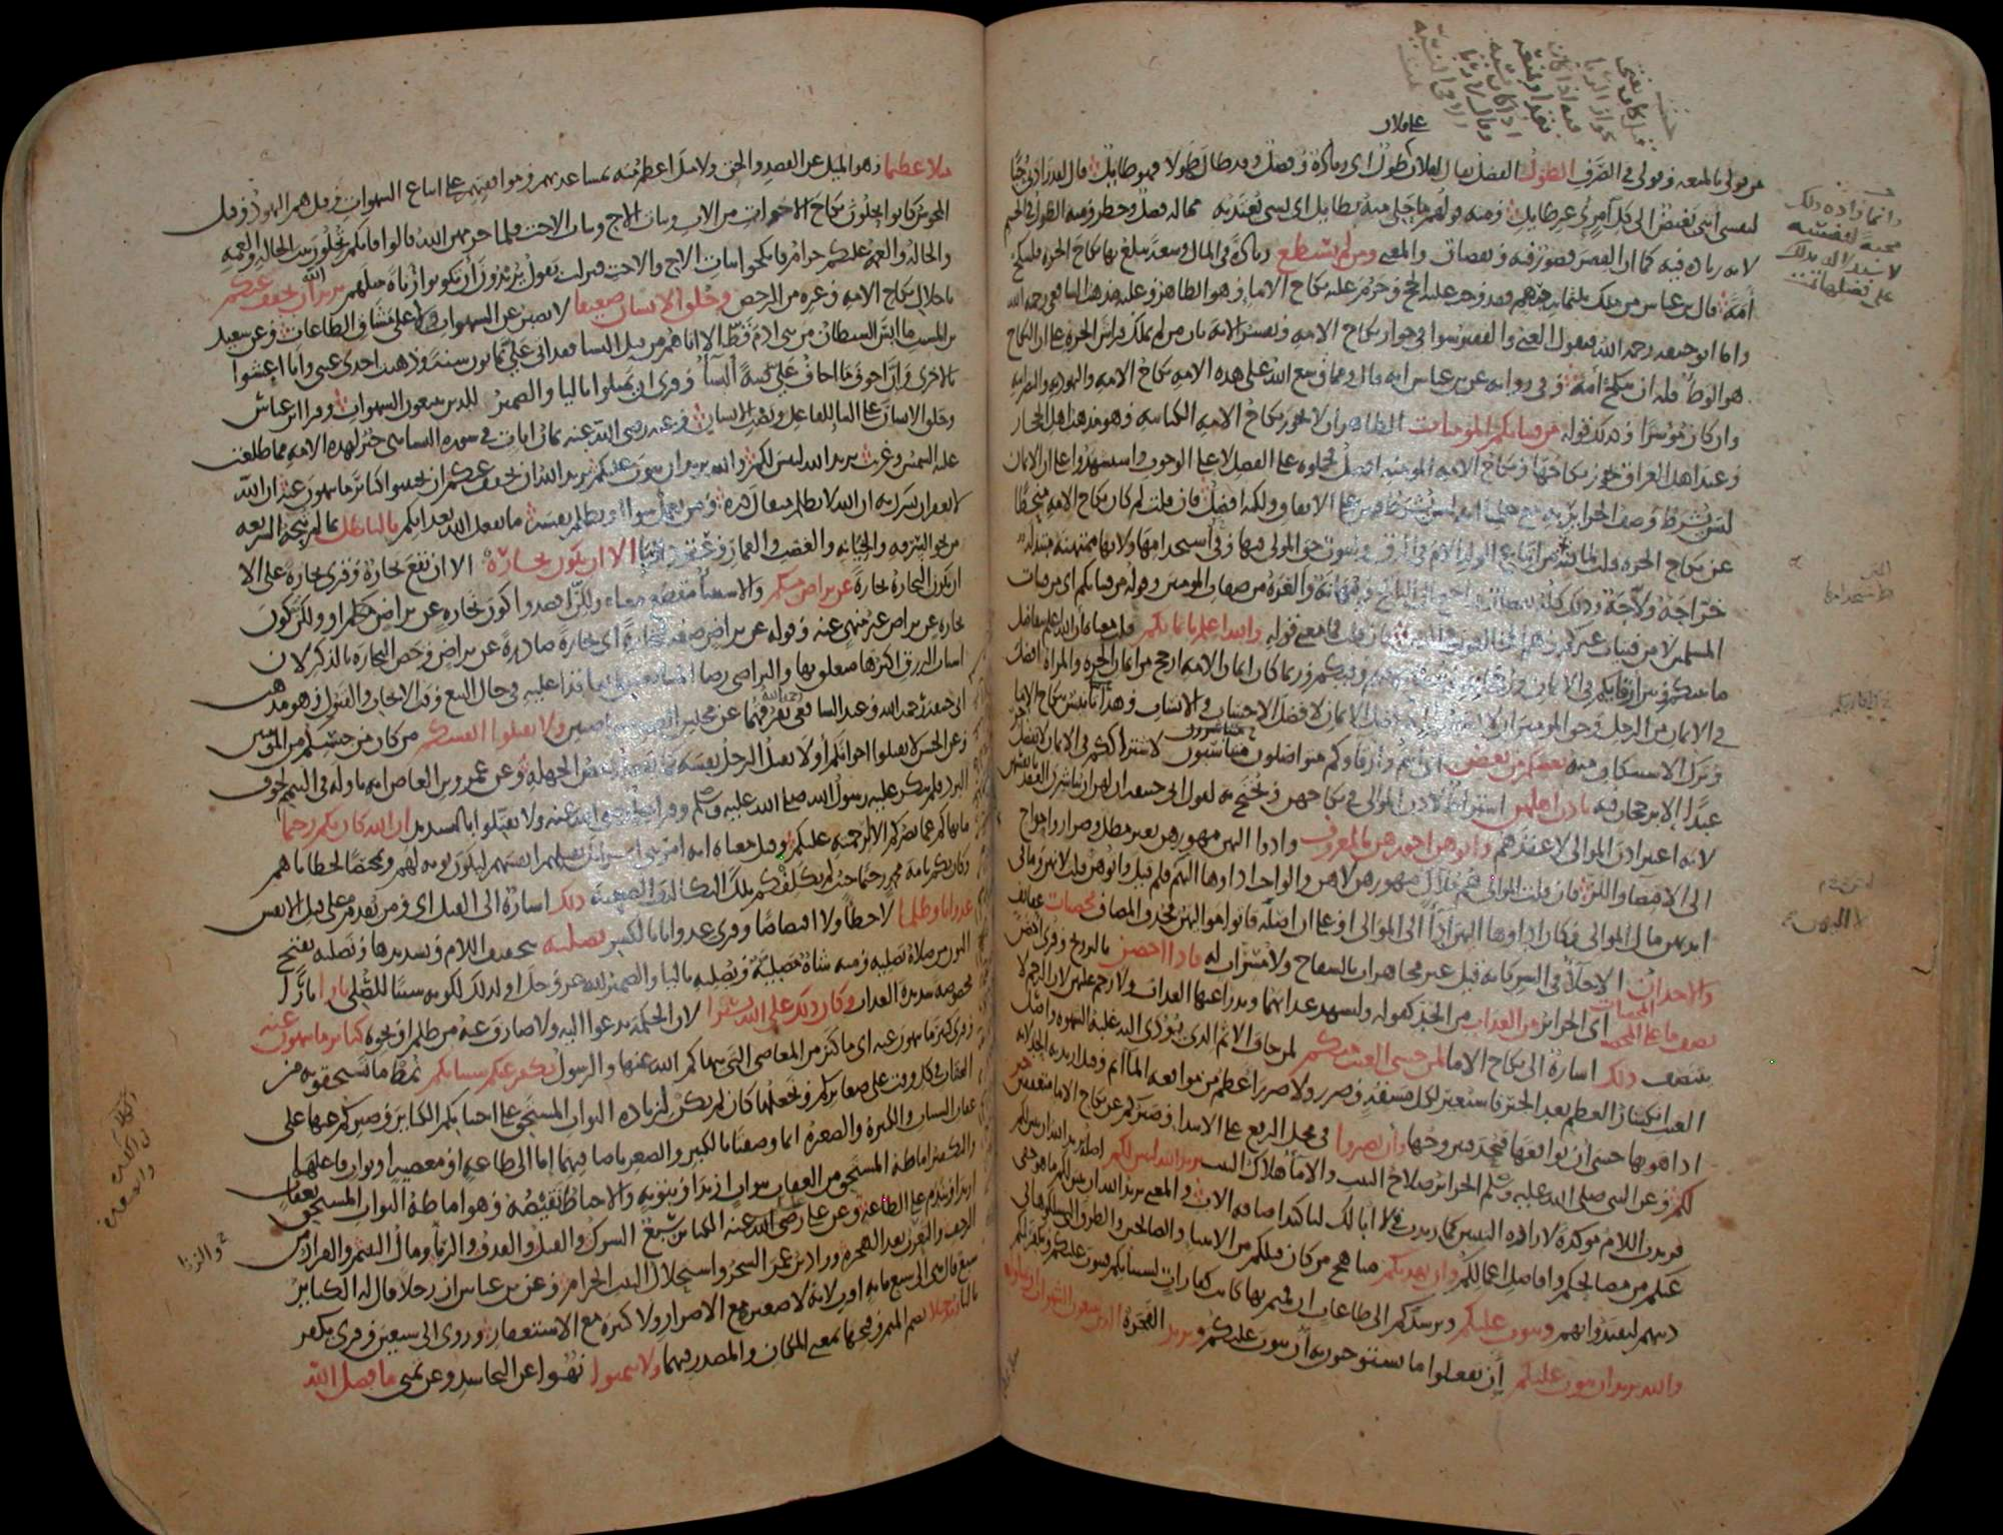 من قولي بالمتعة وقولي في الصرف الطول الفضل يقال لفلان على فلان طول اى زيادة وفضل وقد طال طولا فهو طايل قال لقد زادني حبا
لنفسي انني بغيض الى كل امرئ غير طايل ومنه قولهم ما حلي منه بطايل اى بشى يعتد به مما له فضل وخطر ومنه الطول في الجسم
لانه زيادة فيه كما ان القصر قصور فيه ونقصان والمعنى ومن لم يستطع زيادة في المال وسعة يبلغ بها نكاح الحرة فلينكح
امة قال ابن عباس من ملك ثلثمائة درهم فقد وجب عليه الحج وحرم عليه نكاح الاماء وهو الظاهر وعليه مذهب الشافعي رحمه الله
واما ابو حنيفة رحمه الله فيقول الغني والفقير سوا في جواز نكاح الامة ويفسر الاية بان من لم يملك فراش الحرة على ان النكاح
هو الوطء فله ان ينكح امة وفي رواية عن ابن عباس انه قال ومما وسع الله على هذه الامة نكاح الامة واليهودية والنصرانية
وان كان موسرا وكذلك قوله من فتياتكم المومنات الظاهر ان لا يجوز نكاح الامة الكتابية وهو مذهب اهل الحجاز
وعند اهل العراق يجوز نكاحها ونكاح الامة المومنة افضل فحملوه على الفضل لا على الوجوب واستشهدوا على ان الايمان
ليس بشرط بوصف الحراير به مع علمنا انه ليس بشرط فيهن على الاتفاق ولكنه افضل فان قلت لم كان نكاح الامة منحطا
عن نكاح الحرة قلت لما فيه من اتباع الولد الام في الرق ولثبوت حق المولى فيها وفي استخدامها ولانها ممتهنة مبتذلة
خراجة ولاجة وذلك كله نقصان راجع الى الناكح ومهانة والعزة من صفات المومنين وقوله من فتياتكم اى من فتيات
المسلمين لا من فتيات غيركم وهم المخالفون في الدين فان قلت فما معنى قوله والله اعلم بايمانكم قلت معناه ان الله اعلم بتفاضل
ما بينكم وبين ارقايكم في الايمان
في الايمان من الرجل وحق المومنين ان لا يعتبروا الا فضل الايمان لا فضل الاحساب والانساب وهذا تانيس بنكاح الاماء
وترك الاستنكاف منه بعضكم من بعض اى انتم وارقاوكم متواصلون متناسبون لاشتراككم في الايمان لا يفضل حر
عبدا الا برجحان فيه باذن اهلهن اشتراط لاذن الموالي في نكاحهن ويحتج به لقول ابي حنيفة ان لهن ان يباشرن العقد بانفسهن
لانه اعتبر اذن الموالي لا عقدهم واتوهن اجورهن بالمعروف وادوا اليهن مهورهن بغير مطل وضرار واحواج
الى الاقتضاء واللز فان قلت الموالي هم ملاك مهورهن لا هن والواجب اداوها اليهم فلم قيل واتوهن قلت لانهن وما في
ايديهن مال الموالي فكان اداوها اليهن اداء الى الموالي او على ان اصله فاتوا مواليهن فحذف المضاف محصنات عفايف
والاخدان الاخلاء في السر كانه قيل غير مجاهرات بالسفاح ولا مسرات له فاذا احصن بالتزويج وقرى احصن
نصف ما على المحصنات اى الحراير من العذاب من الحد كقوله وليشهد عذابهما ويدرا عنها العذاب ولا رجم عليهن لان الرجم لا
يتنصف ذلك اشارة الى نكاح الاماء لمن خشي العنت منكم لمن خاف الاثم الذي يودي اليه غلبة الشهوة واصل
العنت انكسار العظم بعد الجبر فاستعير لكل مشقة وضرر ولا ضرر اعظم من مواقعة الماثم وقيل اريد به الحد لانه
اذا هويها خشي ان يواقعها فيحد فيتزوجها وان تصبروا في محل الرفع على الابتداء اى وصبركم عن نكاح الاماء متعففين خير
لكم وعن النبي صلى الله عليه وسلم الحراير صلاح البيت والاماء هلاك البيت يريد الله ليبين لكم اصله يريد الله ان يبين لكم
فزيدت اللام موكدة لارادة التبيين كما زيدت في لا ابا لك لتاكيد اضافة الاب والمعنى يريد الله ان يبين لكم ما هو خفي
عنكم من مصالحكم وافاضل اعمالكم وان يهديكم مناهج من كان قبلكم من الانبياء والصالحين والطرق التي سلكوها في
دينهم لتقتدوا بهم ويتوب عليكم ويرشدكم الى طاعات ان قمتم بها كانت كفارات لسياتكم فيتوب عليكم ويكفر لكم
والله يريد ان يتوب عليكم ان تفعلوا ما تستوجبون به ان يتوب عليكم ويريد الفجرة الذين يتبعون الشهوات ان تميلوا
ميلا عظيما وهو الميل عن القصد والحق ولا ميل اعظم منه بمساعدتهم وموافقتهم على اتباع الشهوات وقيل هم اليهود وقيل
المجوس كانوا يحلون نكاح الاخوات من الاب وبنات الاخ وبنات الاخت فلما حرمهن الله قالوا فانكم تحلون بنت الخالة والعمة
والخالة والعمة عليكم حرام فانكحوا بنات الاخ والاخت فنزلت يقول يريدون ان تكونوا زناة مثلهم يريد الله ان يخفف عنكم
باحلال نكاح الامة وغيره من الرخص وخلق الانسان ضعيفا لا يصبر عن الشهوات وعلى مشاق الطاعات وعن سعيد
بن المسيب ما ايس الشيطان من بني ادم قط الا اتاهم من قبل النساء فقد اتى علي ثمانون سنة وذهبت احدى عيني وانا اعشوا
بالاخرى وان اخوف ما اخاف علي فتنة النساء وقرى ان يميلوا بالياء والضمير للذين يتبعون الشهوات وقرا ابن عباس
وخلق الانسان على البناء للفاعل ونصب الانسان وعنه رضي الله عنه ثمان ايات في سورة النساء هي خير لهذه الامة مما طلعت
عليه الشمس وغربت يريد الله ليبين لكم والله يريد ان يتوب عليكم يريد الله ان يخفف عنكم ان تجتنبوا كباير ما تنهون عنه ان الله
لا يغفر ان يشرك به ان الله لا يظلم مثقال ذرة ومن يعمل سوا او يظلم نفسه ما يفعل الله بعذابكم بالباطل بما لم تبحه الشريعة
من نحو السرقة والخيانة والغصب والقمار وعقود الربا الا ان تكون تجارة الا ان تقع تجارة وقرى تجارة على الا
ان تكون التجارة تجارة عن تراض منكم والاستثناء منقطع معناه ولكن اقصدوا كون تجارة عن تراض منكم او ولكن كون
تجارة عن تراض غير منهي عنه وقوله عن تراض صفة لتجارة اى تجارة صادرة عن تراض وخص التجارة بالذكر لان
اسباب الرزق اكثرها متعلق بها والتراضي رضا المتبايعين بما تعاقدا عليه في حال البيع وقت الايجاب والقبول وهو مذهب
ابي حنيفة رحمه الله وعند الشافعي رحمه الله تفرقهما عن مجلس العقد متراضيين ولا تقتلوا انفسكم من كان من جنسكم من المومنين
وعن الحسن لا تقتلوا اخوانكم او لا يقتل الرجل نفسه كما يفعله بعض الجهلة وعن عمرو بن العاص انه تاوله في التيمم لخوف
البرد فلم ينكر عليه رسول الله صلى الله عليه وسلم وقرا علي رضي الله عنه ولا تقتلوا بالتشديد ان الله كان بكم رحيما
ما نهاكم عما يضركم الا لرحمته عليكم وقيل معناه انه امر بني اسرائيل بقتلهم انفسهم ليكون توبة لهم وتمحيصا لخطاياهم
وكان بكم يا امة محمد رحيما حيث لم يكلفكم تلك التكاليف الصعبة ذلك اشارة الى القتل اى ومن يقدم على قتل الانفس
عدوانا وظلما لا خطا ولا اقتصاصا وقرى عدوانا بالكسر نصليه بتخفيف اللام وتشديدها ونصليه بفتح
النون من صلاه يصليه ومنه شاة مصلية ويصليه بالياء والضمير لله عز وجل او لذلك لكونه سببا للصلي نارا اى نارا
مخصوصة شديدة العذاب وكان ذلك على الله يسيرا لان الحكمة تدعوا اليه ولا صارف عنه من ظلم او نحوه كباير ما تنهون عنه
وقرى كبير ما تنهون عنه اى ما كبر من المعاصي التي ينهاكم الله عنها والرسول نكفر عنكم سياتكم نمط ما تستحقونه من
العقاب في كل وقت على صغايركم ونجعلها كان لم تكن لزيادة الثواب المستحق على اجتنابكم الكباير وصبركم عنها على
عقاب السيات والكبيرة والصغيرة انما وصفتا بالكبر والصغر باضافتهما اما الى طاعة او معصية او ثواب فاعلهما
والتكفير اماطة المستحق من العقاب بثواب ازيد او بتوبة والاحباط نقيضه وهو اماطة الثواب المستحق بعقاب
ازيد او بندم على الطاعة وعن علي رضي الله عنه الكباير سبع الشرك والقتل والقذف والزنا ومال اليتيم والفرار من
الزحف والتعرب بعد الهجرة وزاد ابن عمر السحر واستحلال البيت الحرام وعن ابن عباس ان رجلا قال له الكباير
سبع قال هي الى سبع ماية اقرب لانه لا صغيرة مع الاصرار ولا كبيرة مع الاستغفار وروى الى سبعين وقرى يكفر
بالياء ومدخلا بضم الميم وفتحها بمعنى المكان والمصدر فيهما ولا تتمنوا نهوا عن التحاسد وعن تمني ما فضل الله